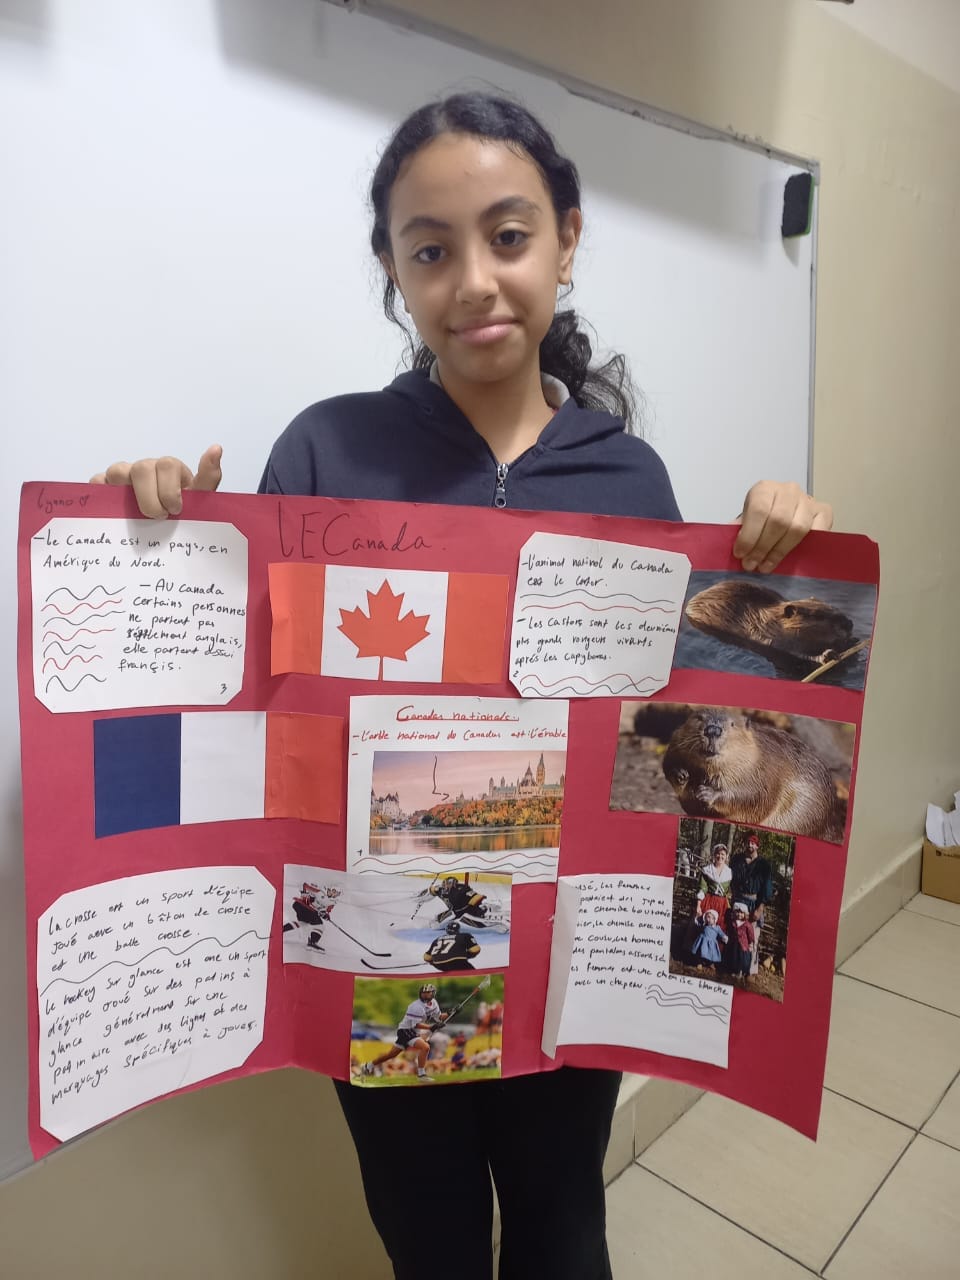 LE Canada.
-Le Canada est un pays, en
Amérique du Nord.
- AU Canada
certains personnes
ne parlent pas
anglais,
elle parlent aussi
français.
3
-L'animal national du Canada
est le
- Les Castors sont les deuxièmes
plus grands rongeurs vivants
après les Capybaras.
2
Canadas nationals.
-L'arble national do Canadas est l'érable
-
1
La crosse est un sport d'équipe
joué avec un bâton de crosse
et une balle crosse.
Le hockey sur glance est one un sport
d'équipe joué sur des patins à
glance généralement sur une
patinoire avec des lignes et des
marquages spécifiques à jouer.
les femmes
portaient des jupes
ne chemise boutonnée
la chemise avec un
Les hommes
des pantalons
es femmes est une chemise blanche
avec un chapeau.
37